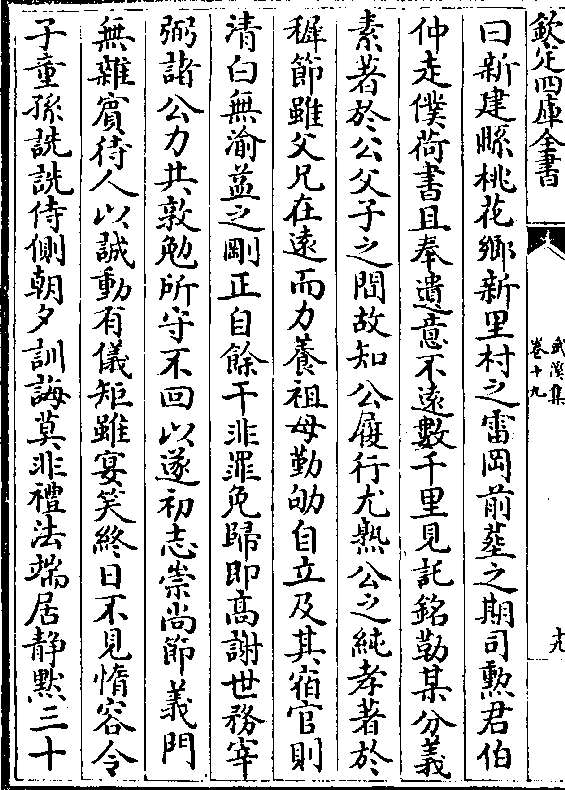 欽定四庫全書
武溪集
卷十九
十九
曰新建縣桃花鄉新里村之雷岡前塟之期司勲君伯
仲走僕荷書且奉遺意不逺數千里見託銘勒某分義
素著於公父子之間故知公履行尤熟公之純孝著於
穉節雖父兄在逺而力養祖母勤劬自立及其宿官則
清白無渝蒞之剛正自餘干非罪免歸即髙謝世務宰
弼諸公力共敦勉所守不回以遂初志崇尚節義門
無雜賓待人以誠動有儀矩雖宴笑終日不見惰容令
子童孫詵詵侍側朝夕訓誨莫非禮法端居静黙三十